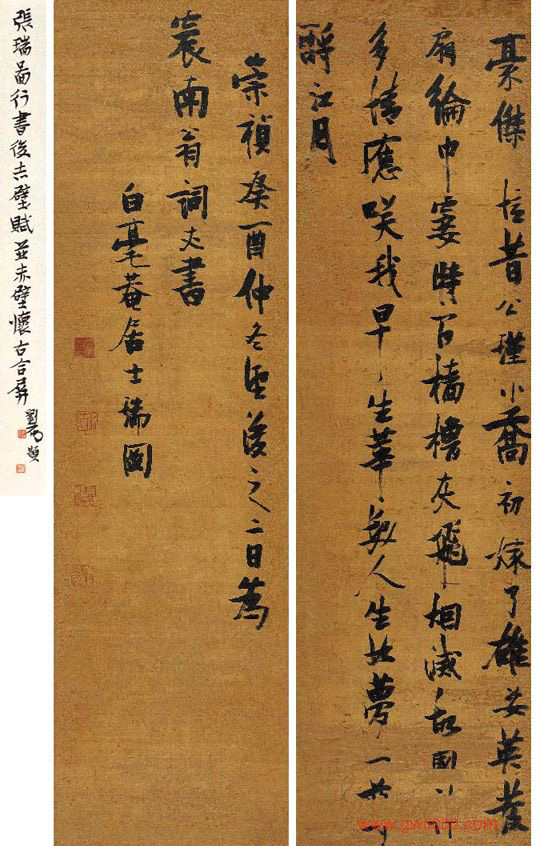 豪傑憶昔公瑾小喬初嫁了雄姿英發
扇綸巾霎時間檣櫓灰飛烟滅故國
多情應笑我早生華髮人生如夢一
酹江月
崇禎癸酉仲冬望後之二日為
裳南翁詞丈書
白毫菴居士瑞圖
張瑞圖行書後赤壁賦並赤壁懷古合屏